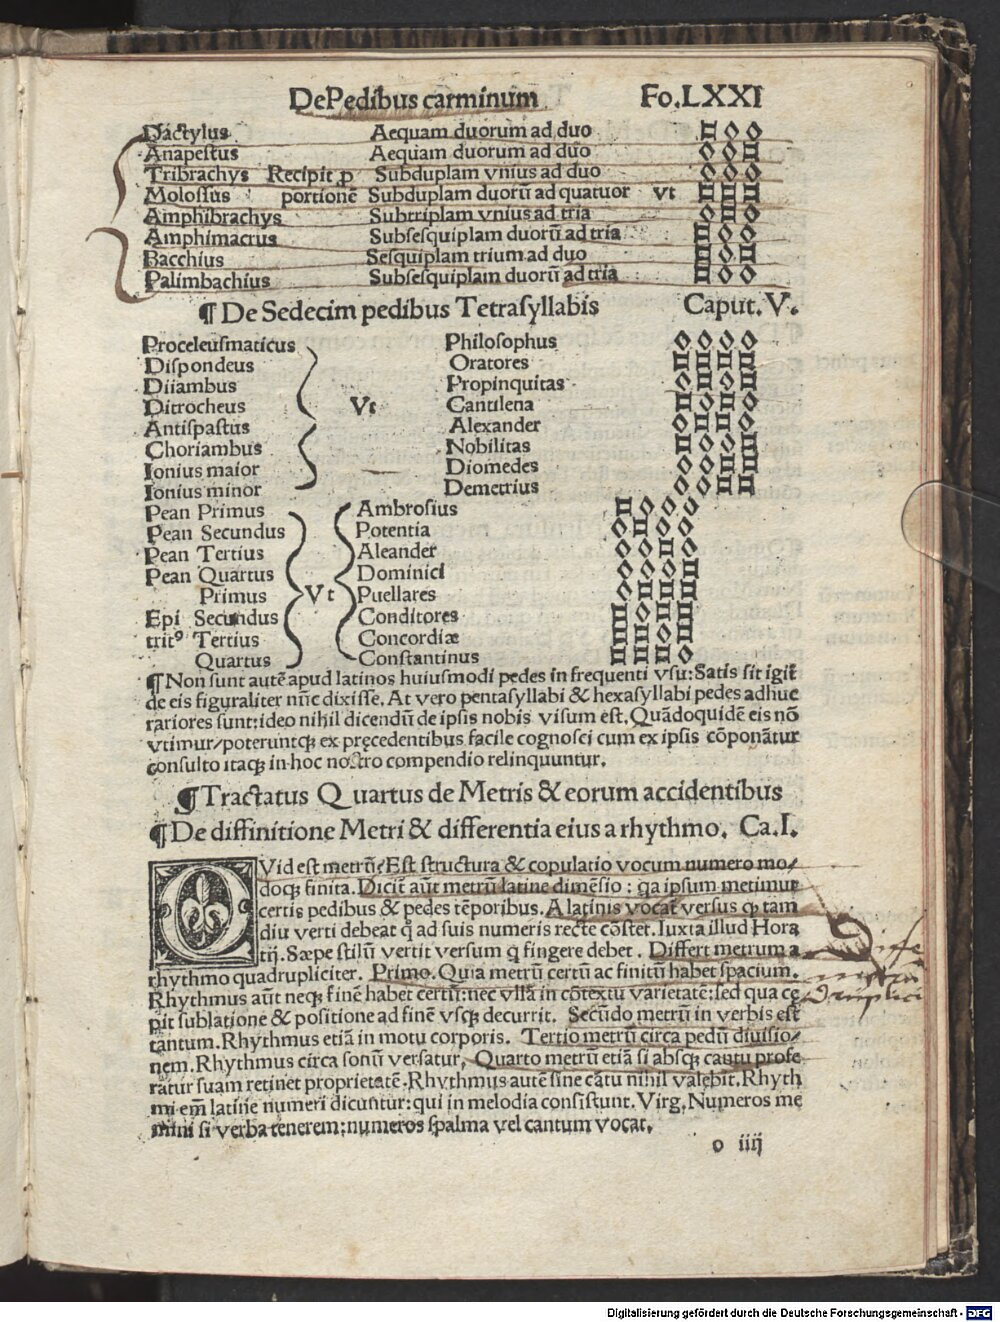 De Pedibus carminum Fo.LXXI
Dactylus Aequam duorum ad duo
Anapestus Aequam duorum ad duo
Tribrachys Recipit ꝓ Subduplam vnius ad duo
Molossus portionē Subduplam duorū ad quatuor vt
Amphibrachys Subtriplam vnius ad tria
Amphimacrus Subsesquiplam duorū ad tria
Bacchius Sesquiplam trium ad duo
Palimbachius Subsesquiplam duorū ad tria
¶ De Sedecim pedibus Tetrasyllabis Caput. V.
Proceleusmaticus Philosophus
Dispondeus Oratores
Diiambus Propinquitas
Ditrocheus Vt Cantilena
Antispastus Alexander
Choriambus Nobilitas
Ionius maior Diomedes
Ionius minor Demetrius
Pean Primus Ambrosius
Pean Secundus Potentia
Pean Tertius Aleander
Pean Quartus Dominici
Primus Vt Puellares
Epi Secundus Conditores
trit⁹ Tertius Concordiæ
Quartus Constantinus
¶ Non sunt autē apud latinos huiusmodi pedes in frequenti vsu: Satis sit igit̄
de eis figuraliter nūc dixisse. At vero pentasyllabi & hexasyllabi pedes adhuc
rariores sunt: ideo nihil dicendū de ipsis nobis visum est. Quādoquidē eis nō
vtimur/poteruntqꝫ ex pręcedentibus facile cognosci cum ex ipsis cōponātur
consulto itaqꝫ in hoc nostro compendio relinquuntur.
¶ Tractatus Quartus de Metris & eorum accidentibus
¶ De diffinitione Metri & differentia eius a rhythmo. Ca.I.
QVid est metrū? Est structura & copulatio vocum numero mo/
doqꝫ finita. Dicit̄ aūt metrū latine dimēsio: qa ipsum metimur
certis pedibus & pedes tēporibus. A latinis vocat̄ versus qꝫ tam
diu verti debeat q̄ ad suis numeris recte cōstet. Iuxta illud Hora
tij. Sæpe stilū vertit versum q̄ fingere debet. Differt metrum a
rhythmo quadrupliciter. Primo. Quia metrū certū ac finitū habet spacium.
Rhythmus aūt neqꝫ finē habet certū: nec vllā in cōtextu varietatē: sed qua cę
pit sublatione & positione ad finē vsqꝫ decurrit. Secūdo metrū in verbis est
tantum. Rhythmus etiā in motu corporis. Tertio metrū circa pedū diuisio/
nem. Rhythmus circa sonū versatur. Quarto metrū etiā si absqꝫ cantu profe
ratur suam retinet proprietatē. Rhythmus autē sine cātu nihil valebit. Rhyth
mi em̄ latine numeri dicuntur: qui in melodia consistunt. Virg. Numeros me
mini si verba tenerem: numeros spalma vel cantum vocat.
o iiij
Digitalisierung gefördert durch die Deutsche Forschungsgemeinschaft - DFG